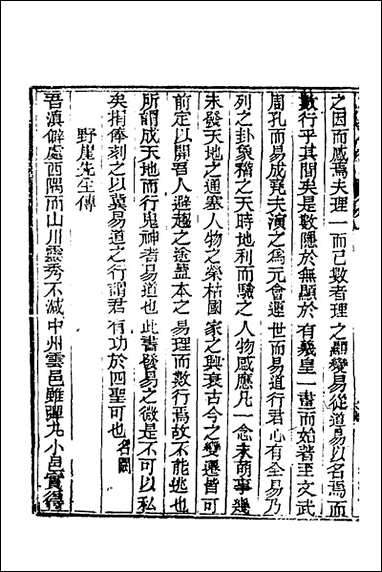 之因而感焉夫理一而已數者理之顯變易從道易以名焉而
數行乎其間矣是數隱於無顯於有羲皇一畫而始著至文武
周孔而易成堯夫演之為元會運世而易道行君心有全易乃
列之卦象稽之天時地利而驗之人物感應凡一念未萌事幾
未發天地之通塞人物之榮枯國家之興衰古今之變遷皆可
前定以開吾人避趨之途蓋本之易理而數行焉故不能逃也
所謂成天地而行鬼神者易道也此書發易之微是不可以私
矣捐俸刻之以冀易道之行謂君有功於四聖可也名闕
野崖先生傳
吾滇僻處西隅而山川靈秀不減中州雲邑雖彈丸小邑實得